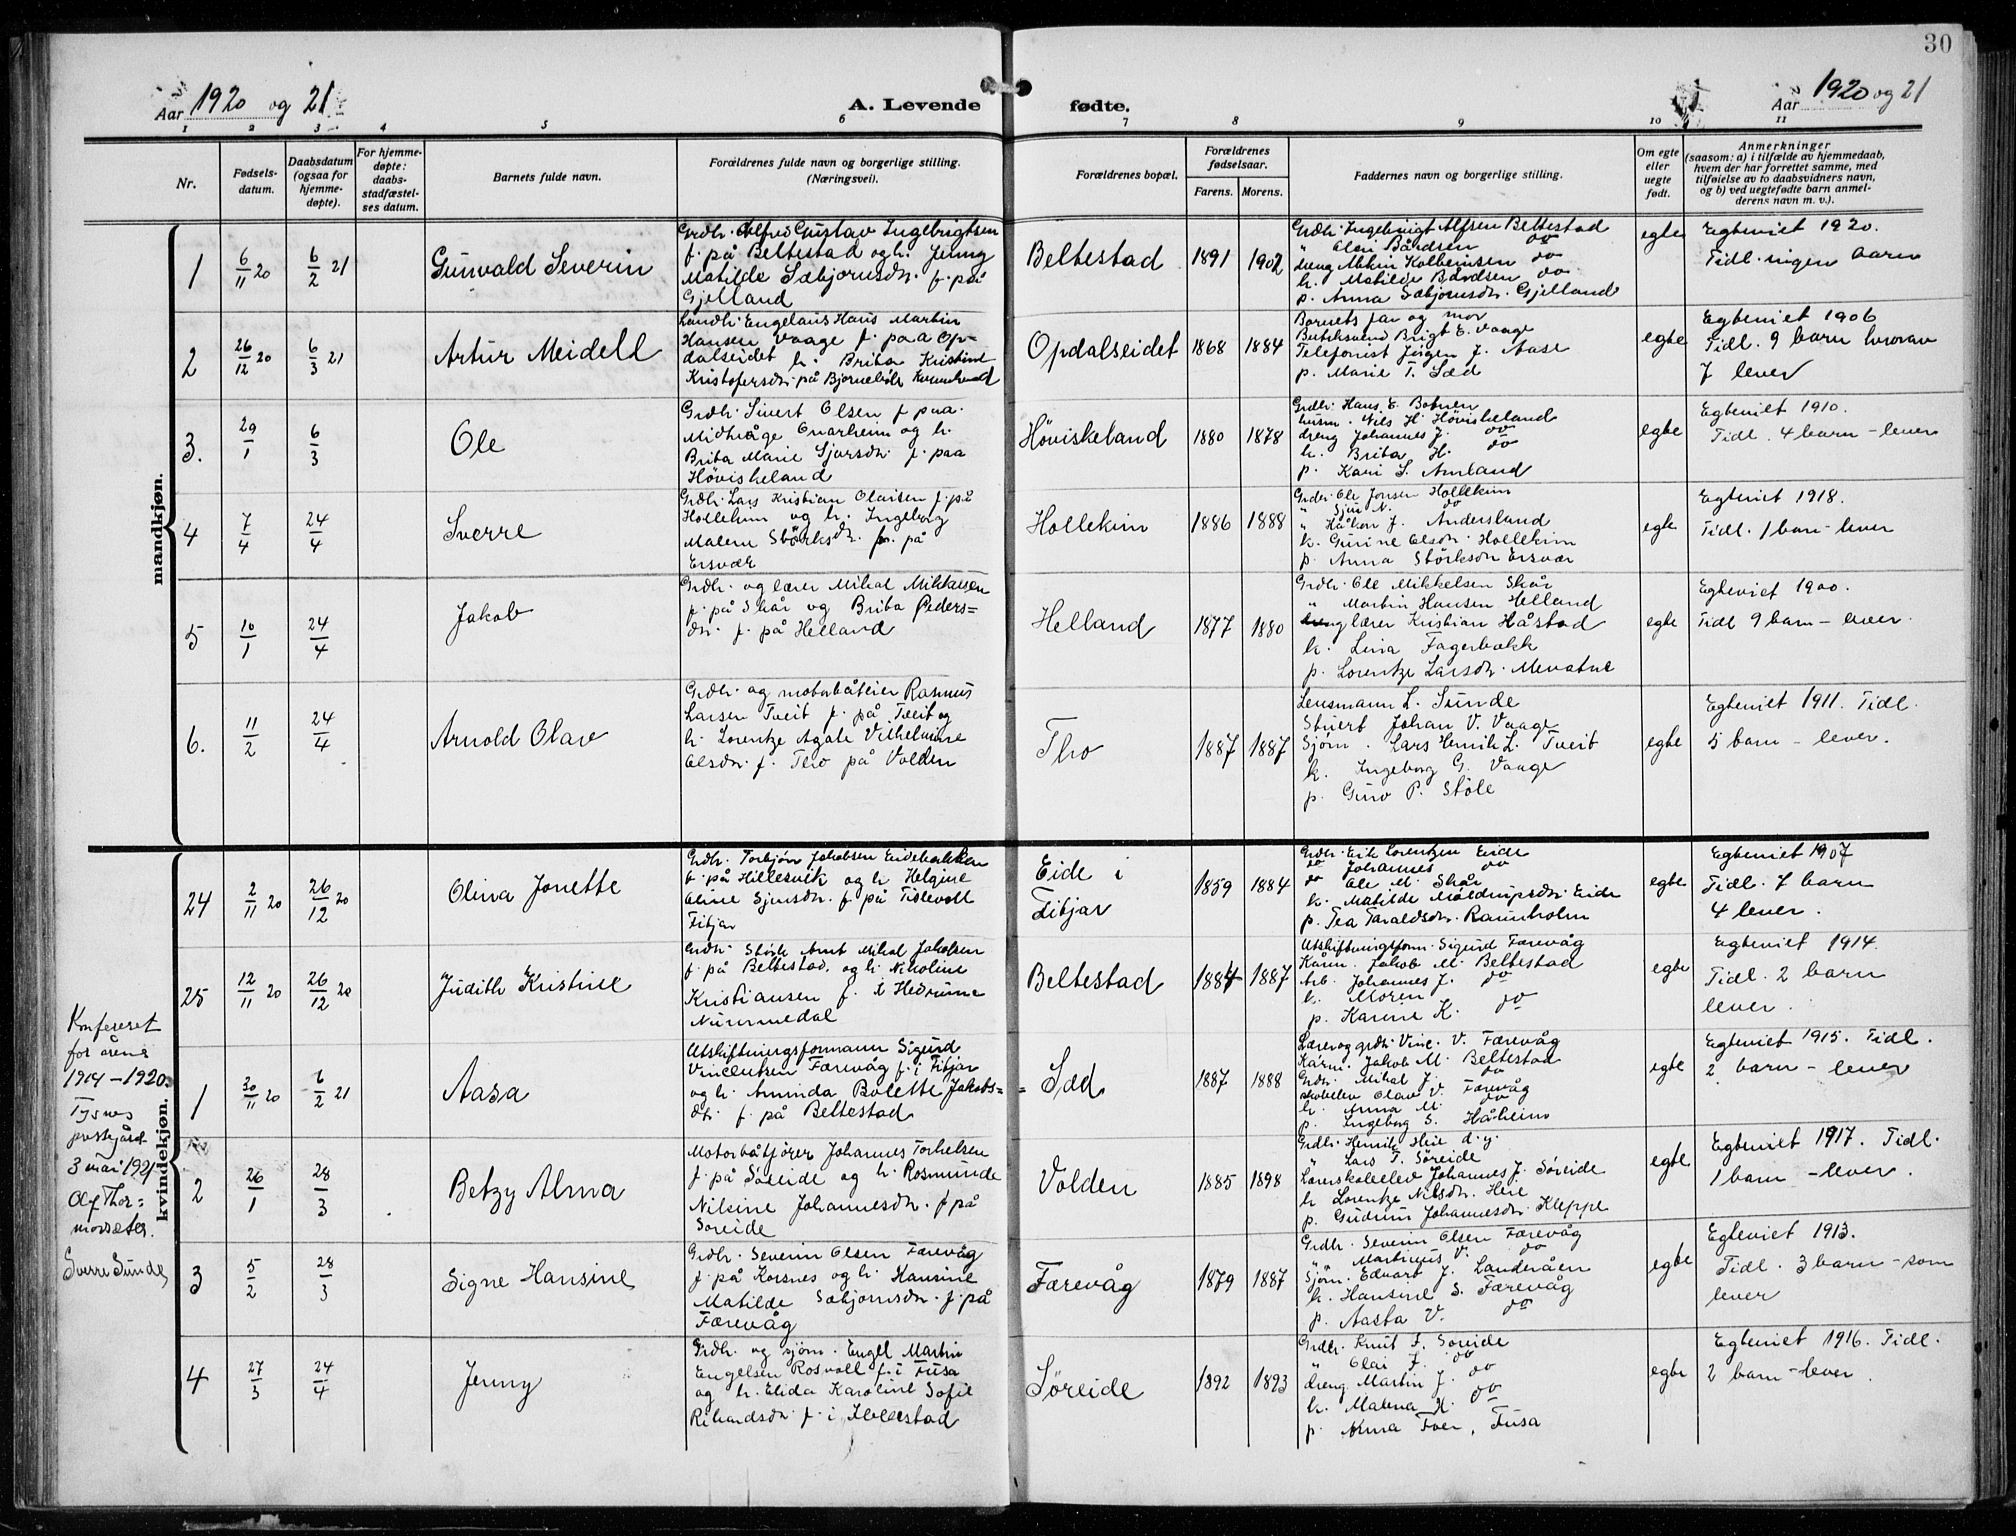 30
Aar 1920 og 21
A. Levende fødte.
Aar 1920 og 21
1 2 3 4 5 6 7 8 9 10 11
Nr.
Fødsels-
datum.
Daabsdatum
(ogsaa for
hjemme-
døpte).
For hjemme-
døpte:
daabs-
stadfæstel-
ses datum.
Barnets fulde navn.
Forældrenes fulde navn og borgerlige stilling.
(Næringsvei).
Forældrenes bopæl.
Forældrenes
fødselsaar.
Farens. Morens.
Faddernes navn og borgerlige stilling.
Om egte
eller
uegte
født.
Anmerkninger
(saasom: a) i tilfælde av hjemmedaab,
hvem der har forrettet samme, med
tilføielse av to daabsvidners navn,
og b) ved uegtefødte barn anmel-
derens navn m. v.).
mandkjøn.
1
6/11 20
6/2 21
Gunvald Severin
Grdbr. Alfred Gustav Ingebrigtsen
f. på Beltestad og h. Jenny
Matilde Sæbjørnsdr. f. på
Gjelland
Beltestad
1891
1902
Grdbr. Ingebrigt Alfsen Beltestad
" Olai Bårdsen do
dreng Kolbeinsen do
k. Matilde Bårdsen do
p. Anna Sæbjørnsdr. Gjelland
egte
Egteviet 1920.
Tidl. ingen barn
2
26/12 20
6/3 21
Artur Meidell
Landh. Engelaus Hans Martin
Hansen Vaage f. paa Op-
dalseidet h. Brita Kristine
Kristofersdr. på
Opdalseidet
1868
1884
Barnets far og mor
Brigt E. Vaage
Telefonist Jørgen J. Aase
p. Marie T. Sæd
egte
Egteviet 1906
Tidl. 9 barn hvorav
7 lever
3.
29/1
6/3
Ole
Grdbr. Sivert Olsen f. paa
Midhvåge Onarheim og h.
Brita Marie Sjursdr. f. paa
Høviskeland
Høviskeland
1880
1878
Grdbr. Hans E. Botnen
husm. Nils H. Høviskeland
dreng Johannes J. do
k. Brita H. do
p. Kari S. Amland
egte
Egteviet 1910.
Tidl. 4 barn - lever
4
7/4
24/4
Sverre
Grdbr. Lars Kristian Olaisen f. på
Hollekim og h. Ingeborg
Malene Størksdr. f. på
Ersvær
Hollekim
1886
1888
Grdbr. Ole Jonsen Hollekim
" Sjur N. do
" Håkon J. Andersland
k. Gurine Olsdr. Hollekim
p. Anna Størksdr. Ersvær
egte
Egteviet 1918.
Tidl. 1 barn - lever
5
10/1
24/4
Jakob
Grdbr. og lærer Mikal Mikkalsen
f. på Skår og Brita Peders=
dr. f. på Helland
Helland
1877
1880
Grdbr. Ole Mikkelsen Skår
" Martin Hansen Helland
lærer Kristian Håstad
k. Lina Fagerbakk
p. Lorentze Larsdr. Mevatne
egte
Egteviet 1900.
Tidl 9 barn - lever.
6.
11/2
24/4
Arnold Olav
Grdbr. og motorbåteier Rasmus
Larsen Tveit f. på Tveit og
h. Lorentze Agate Vilhelmine
Olsdr. f. Tho på Volden
Tho
1887
1887
Lensmann L. Sunde
Stuert Johan V. Vaage
Sjøm. Lars Henrik L. Tveit
k. Ingeborg G. Vaage
p. Guro P. Støle
egte
Egteviet 1911. Tidl.
5 barn - lever.
kvindekjøn.
24
2/11 20
26/12 20
Olina Jonette
Grdbr. Torbjørn Jakobsen Eidebakken
f. på Hillesvik og h. Helgine
Oline Sjursdr. f. på Tislevoll
Fitjar
Eide i
Fitjar
1859
1884
Grdbr. Erik Lorentzen Eide
do Johannes do
do Ole M. Skår
k. Matilde Moldrupsdr. Eide
p. Tea Taraldsdr. Raunholm
egte
Egteviet 1907
Tidl. 7 barn
4 lever.
25
12/11 20
26/12 20
Judith Kristine
Grdbr. Størk Arnt Mikal Jakobsen
f. på Beltestad, og h. Nikoline
Kristiansen f. i Hedrum
Nummedal
Beltestad
1884
1887
Utskiftningsform. Sigurd Færevåg
Kårm. Jakob M. Beltestad
Arb. Johannes J. do
k. Moren
p. Karine K. do
egte
Egteviet 1914.
Tidl. 2 barn
lever.
1
30/11 20
6/2 21
Aasa
Utskiftningsformann Sigurd
Vincentsen Færevåg f. i Fitjar
og h. Aminda Bolette Jakobs=
dr. f. på Beltestad
Sæd
1887
1888
Lærer og grdbr. Vinc. V. Færevåg
Kårm. Jakob M. Beltestad
Grdbr. Mikal J. do
Olav V. Færevåg
k. Anna M. do
p. Ingeborg S. Håheim
egte
Egteviet 1915. Tidl.
2 barn - lever
2
26/1
28/3
Betzy Alma
Motorbåtfører Johannes Torkelsen
f. på Søreide og h. Rosmunde
Nilsine Johannesdr. f. på
Søreide
Volden
1885
1898
Grdbr. Henrik Heie d.y.
Lars T. Søreide
Lærerskoleelev Johannes J. Søreide
k. Lorentze Nilsdr. Heie
p. Gudrun Johannesdr. Kleppe
egte
Egteviet 1917. Tidl.
1 barn - lever.
3
5/2
28/3
Signe Hansine
Grdbr. Severin Olsen Færevåg
f. på Korsnes og h. Hansine
Matilde Sæbjørnsdr. f. på
Færevåg
Færevåg
1879
1887
Grdbr. Severin Olsen Færevåg
" Martinus V. do
Sjøm. Edvart J. Landråen
k. Hansine S. Færevåg
p. Aasta V. do
egte
Egteviet 1913.
Tidl. 3 barn - som
lever
4
27/3
24/4
Jenny
Grdbr. og sjøm. Engel Martin
Engelsen Rosvoll f. i Fusa
og h. Elida Karoline Sofie
Rikardsdr. f. i
Søreide
1892
1893
Grdbr. Knut F. Søreide
" Olai F. do
dreng Martin J. do
k. Malena H. do
p. Anna Fusa
egte
Egteviet 1916. Tidl.
2 barn - lever.
Konfereret
for årene
1914-1920.
Tysnes
prestegård
3 mai 1921
Olf Thor=
morsæter.
Sverre Sunde